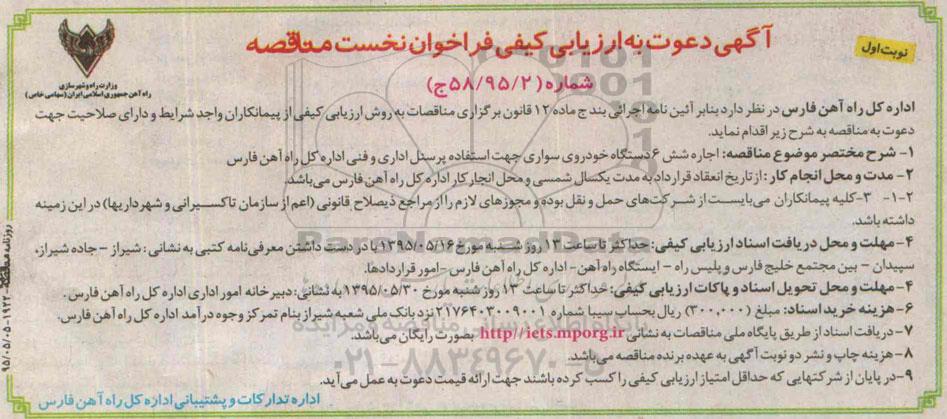 نوبت اول
آگهی دعوت به ارزیابی کیفی فراخوان نخست مناقصه
شماره (۵۸/۹۵/۲ج)
وزارت راه و شهرسازی
راه آهن جمهوری اسلامی ایران (سهامی خاص)
اداره کل راه آهن فارس در نظر دارد بنابر آئین نامه اجرائی بند ج ماده ۱۲ قانون برگزاری مناقصات به روش ارزیابی کیفی از پیمانکاران واجد شرایط و دارای صلاحیت جهت
دعوت به مناقصه به شرح زیر اقدام نماید.
۱- شرح مختصر موضوع مناقصه: اجاره شش ۶ دستگاه خودروی سواری جهت استفاده پرسنل اداری و فنی اداره کل راه آهن فارس
۲- مدت و محل انجام کار: از تاریخ انعقاد قرارداد به مدت یکسال شمسی و محل انجار کار اداره کل راه آهن فارس می‌باشد.
۲-۱- ۳-کلیه پیمانکاران می‌بایست از شرکت‌های حمل و نقل بوده و مجوزهای لازم را از مراجع ذیصلاح قانونی (اعم از سازمان تاکسیرانی و شهرداریها) در این زمینه
داشته باشد.
۴- مهلت و محل دریافت اسناد ارزیابی کیفی: حداکثر تا ساعت ۱۳ روز شنبه مورخ ۱۳۹۵/۰۵/۱۶ با در دست داشتن معرفی‌نامه کتبی به نشانی: شیراز - جاده شیراز،
سپیدان - بین مجتمع خلیج فارس و پلیس راه - ایستگاه راه آهن- اداره کل راه آهن فارس -امور قراردادها.
۴- مهلت و محل تحویل اسناد و پاکات ارزیابی کیفی: حداکثر تا ساعت ۱۳ روز شنبه مورخ ۱۳۹۵/۰۵/۳۰ به نشانی: دبیرخانه امور اداری اداره کل راه آهن فارس.
۶- هزینه خرید اسناد: مبلغ (۳۰۰,۰۰۰) ریال بحساب سیبا شماره ۲۱۷۶۴۰۳۰۰۹۰۰۱ نزد بانک ملی شعبه شیراز بنام تمرکز وجوه درآمد اداره کل راه آهن فارس.
۷- دریافت اسناد از طریق پایگاه ملی مناقصات به نشانی http//iets.mporg.ir بصورت رایگان می‌باشد.
۸- هزینه چاپ و نشر دو نوبت آگهی به عهده برنده مناقصه می‌باشد.
۹-در پایان از شرکتهایی که حداقل امتیاز ارزیابی کیفی را کسب کرده باشند جهت ارائه قیمت دعوت به عمل می‌آید.
اداره تدارکات و پشتیبانی اداره کل راه آهن فارس
روزنامه مناقصه ۱۹۲۲-۹۵/۰۵/۰۵
ParsNamadData
۰۲۱-۸۸۳۴۹۶۷۰